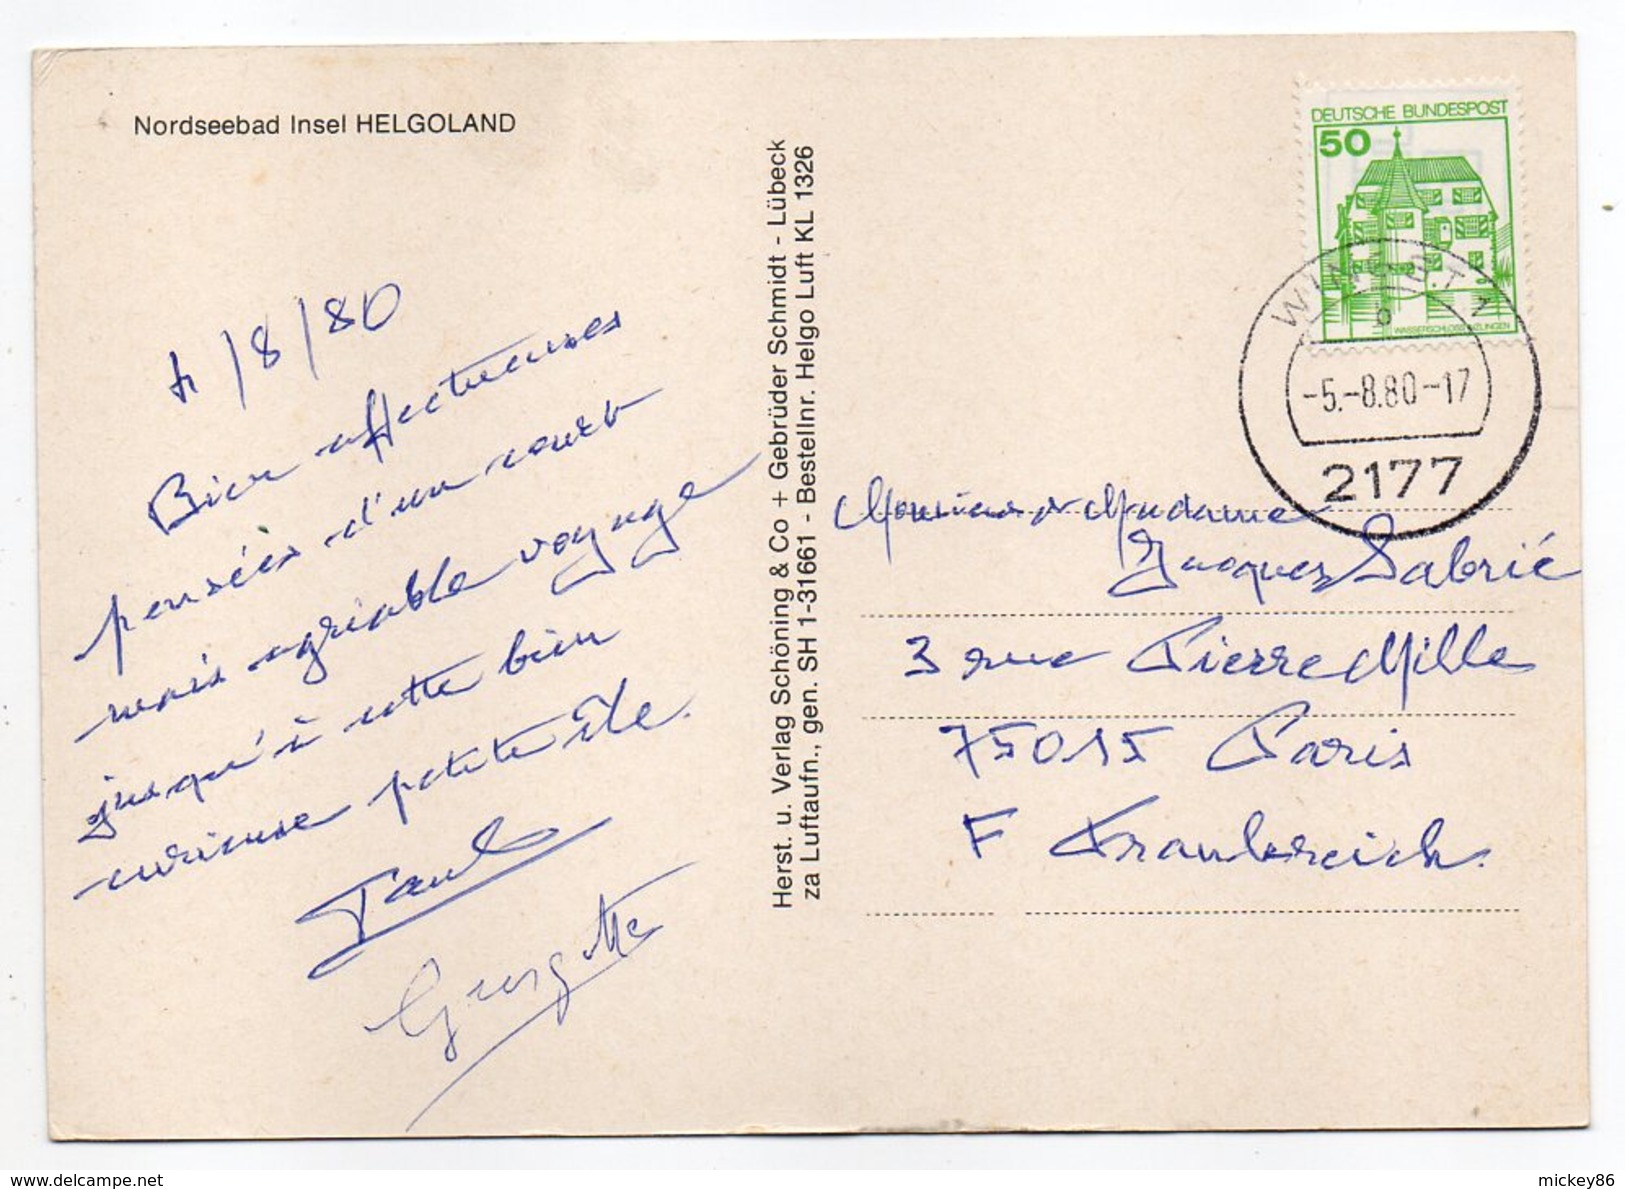 Nordseebad Insel HELGOLAND
4/8/80
Bien affectueuses
pensées d'un court
mais agréable voyage
jusqu'à cette bien
curieuse petite île.
Paul
Georgette
Herst. u. Verlag Schöning & Co + Gebrüder Schmidt - Lübeck
za Luftaufn., gen. SH 1-31661 - Bestellnr. Helgo Luft KL 1326
DEUTSCHE BUNDESPOST
50
WASSERSCHLOSS INZLINGEN
WINGST 1
-5.-8.80-17
2177
Monsieur et Madame
Jacques Sabrié
3 rue Pierre Mille
75015 Paris
F Frankreich.
www.delcampe.net
mickey86